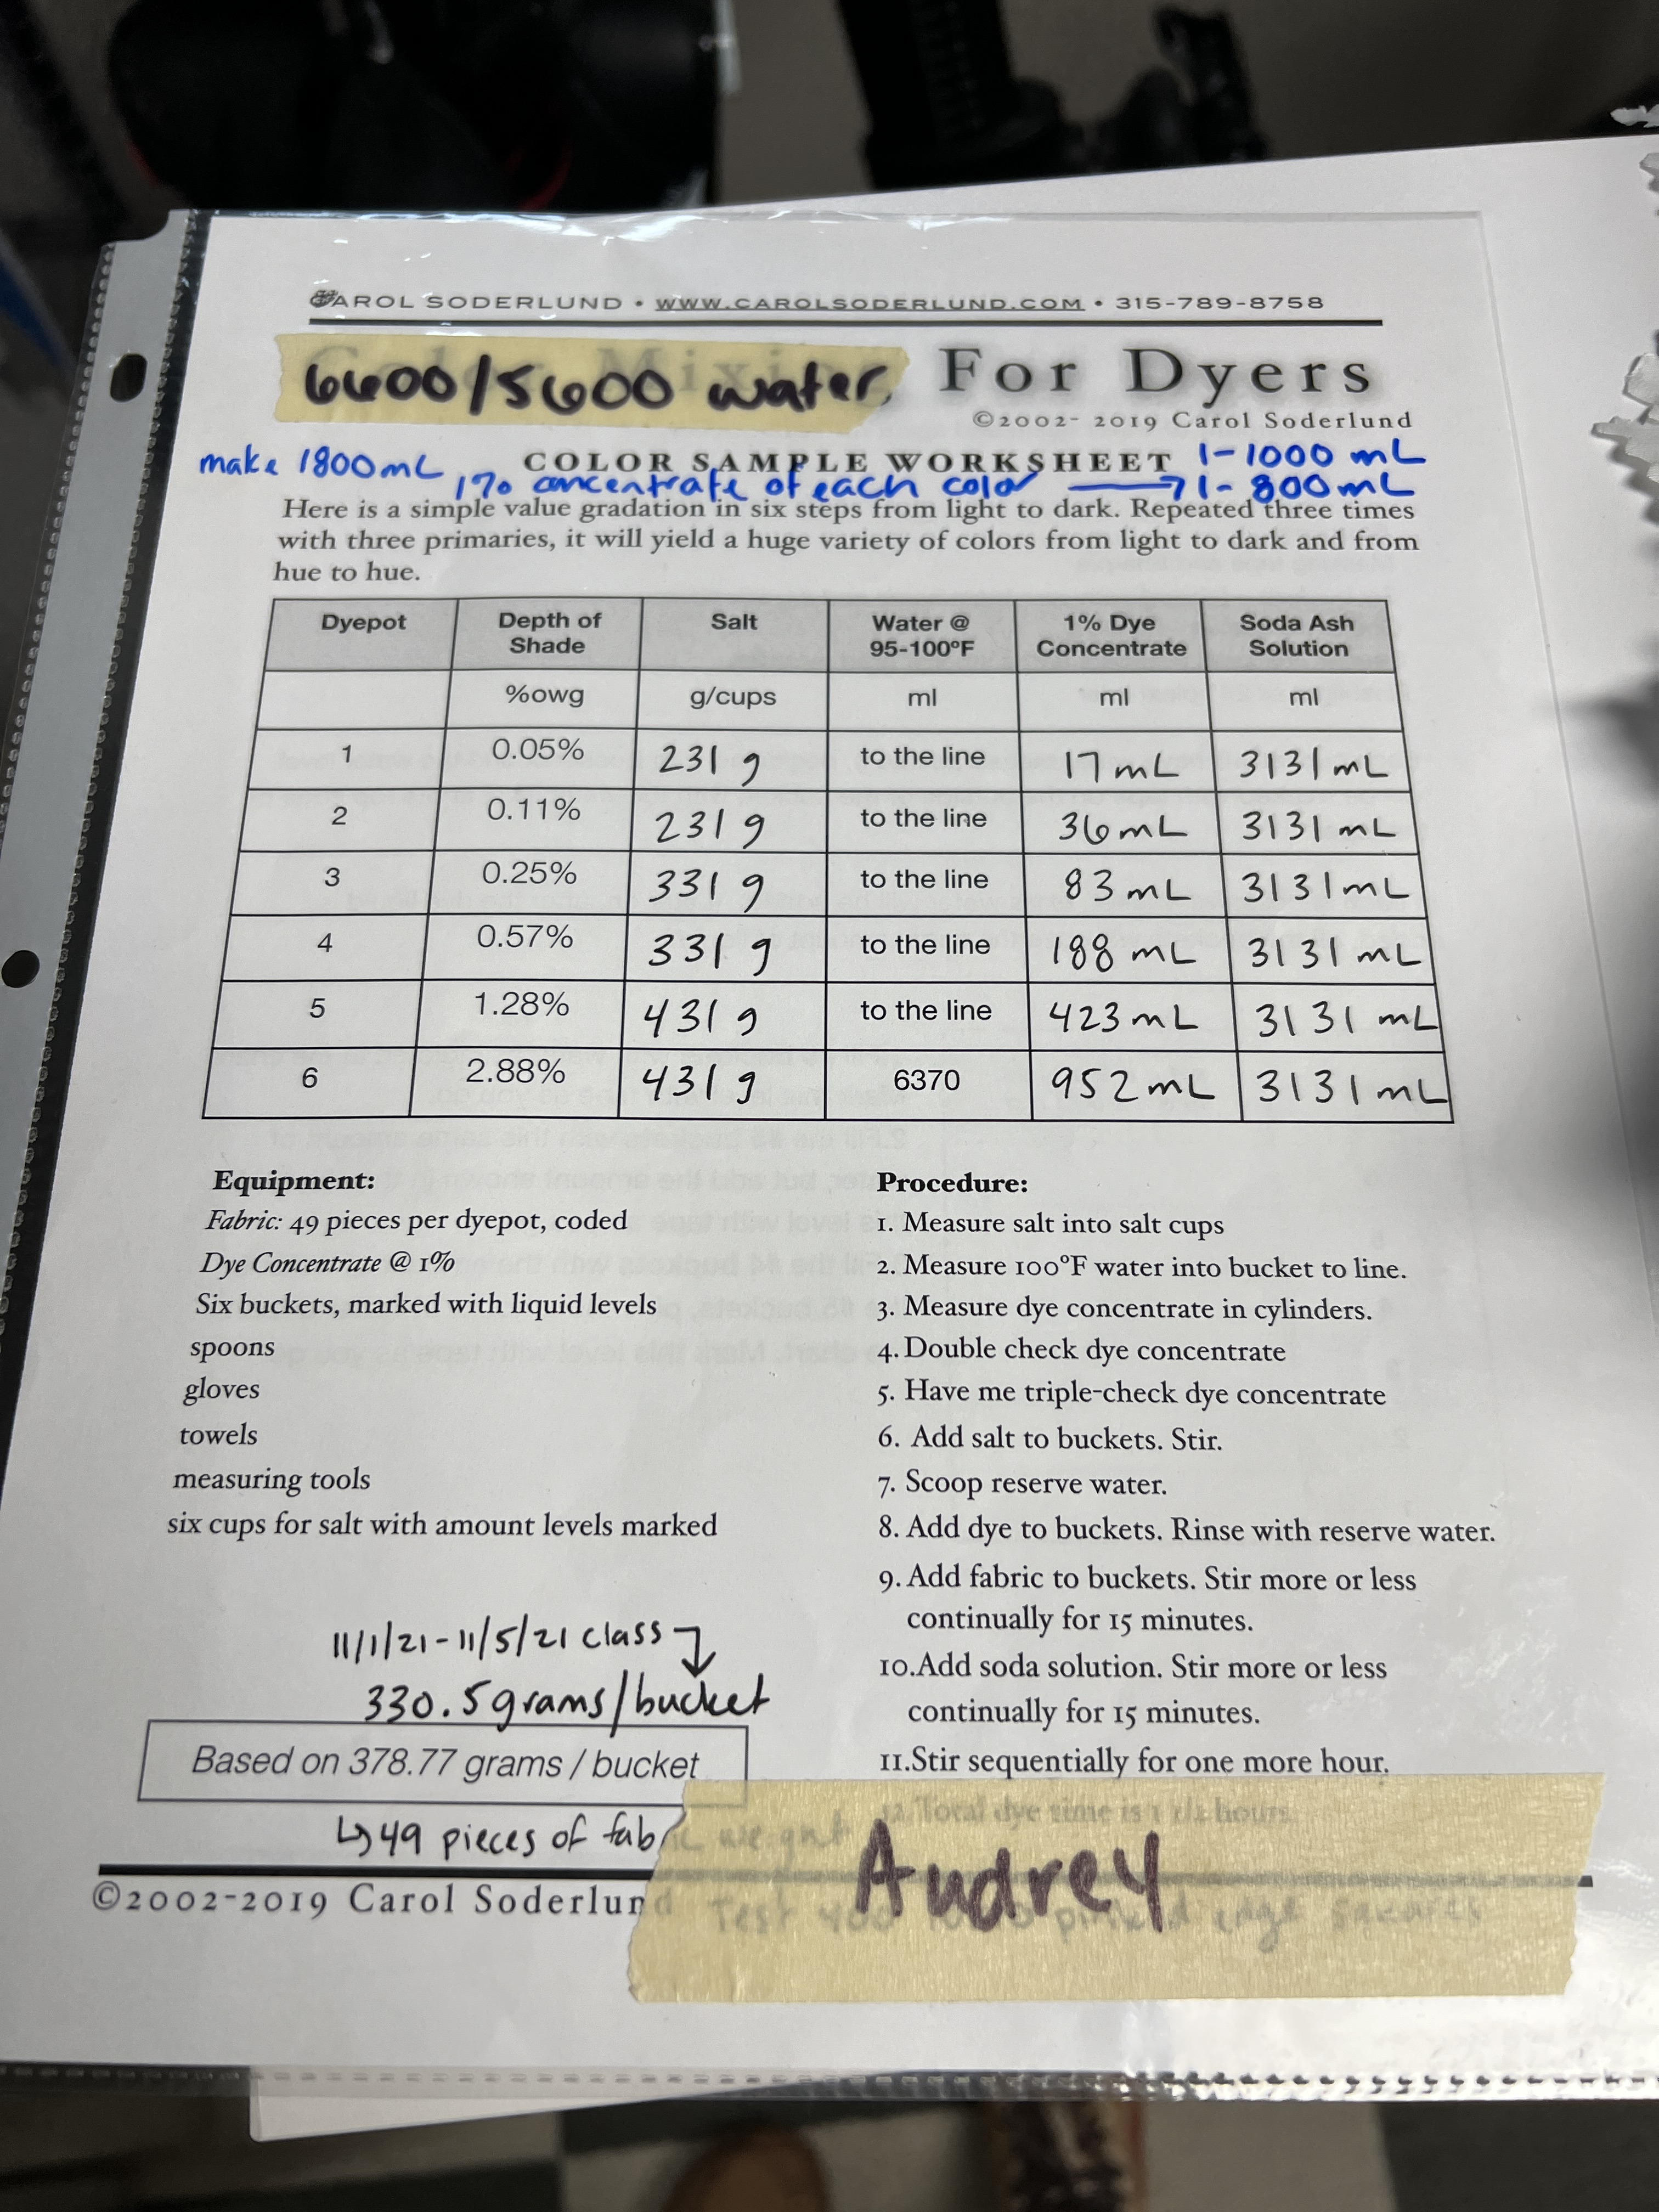 CAROL SODERLUND • WWW.CAROLSODERLUND.COM • 315-789-8758
6600/5600 water
Color Mixing For Dyers
©2002- 2019 Carol Soderlund
make 1800mL
COLOR SAMPLE WORKSHEET 1-1000 mL
1% concentrate of each color → 1-800mL
Here is a simple value gradation in six steps from light to dark. Repeated three times
with three primaries, it will yield a huge variety of colors from light to dark and from
hue to hue.
Dyepot Depth of Shade Salt Water @ 95-100ºF 1% Dye Concentrate Soda Ash Solution
%owg g/cups ml ml ml
1 0.05% 231 g to the line 17 mL 3131 mL
2 0.11% 231 g to the line 36 mL 3131 mL
3 0.25% 331 g to the line 83 mL 3131 mL
4 0.57% 331 g to the line 188 mL 3131 mL
5 1.28% 431 g to the line 423 mL 3131 mL
6 2.88% 431 g 6370 952 mL 3131 mL
Equipment:
Fabric: 49 pieces per dyepot, coded
Dye Concentrate @ 1%
Six buckets, marked with liquid levels
spoons
gloves
towels
measuring tools
six cups for salt with amount levels marked
Procedure:
1. Measure salt into salt cups
2. Measure 100ºF water into bucket to line.
3. Measure dye concentrate in cylinders.
4. Double check dye concentrate
5. Have me triple-check dye concentrate
6. Add salt to buckets. Stir.
7. Scoop reserve water.
8. Add dye to buckets. Rinse with reserve water.
9. Add fabric to buckets. Stir more or less
continually for 15 minutes.
10.Add soda solution. Stir more or less
continually for 15 minutes.
11.Stir sequentially for one more hour.
12. Total dye time is 1 1/2 hours.
11/1/21-11/5/21 class
330.5 grams/bucket
Based on 378.77 grams / bucket
↳ 49 pieces of fabric weight
Audrey
©2002-2019 Carol Soderlund
Test pinked edge